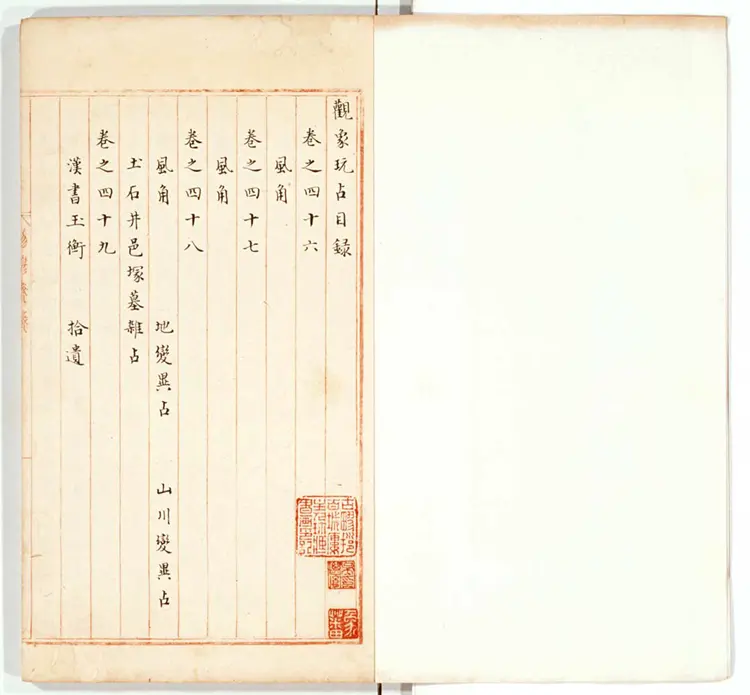 觀象玩占目録
卷之四十六
風角
卷之四十七
風角
卷之四十八
風角 地變異占 山川變異占
土石井邑塚墓雜占
卷之四十九
漢書玉衡 拾遺